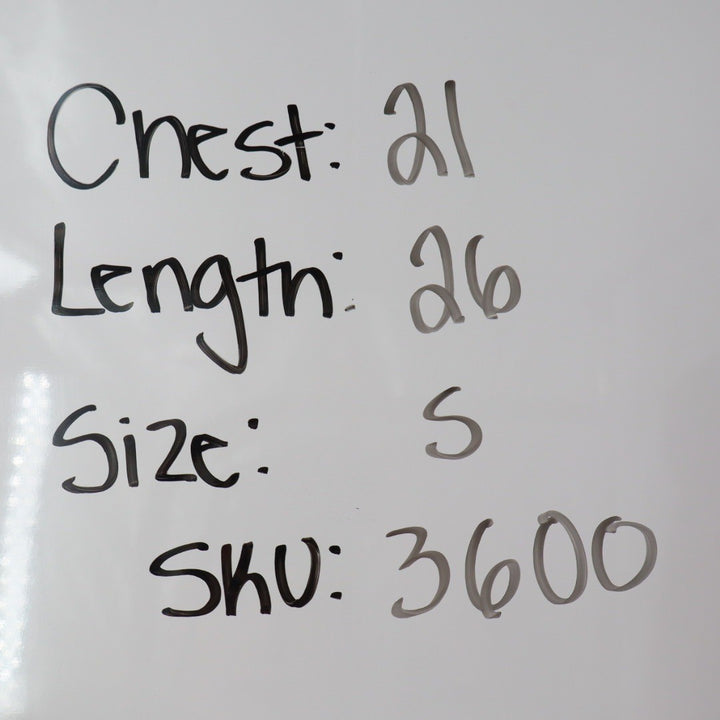 Chest: 21
Length: 26
Size: S
SKU: 3600